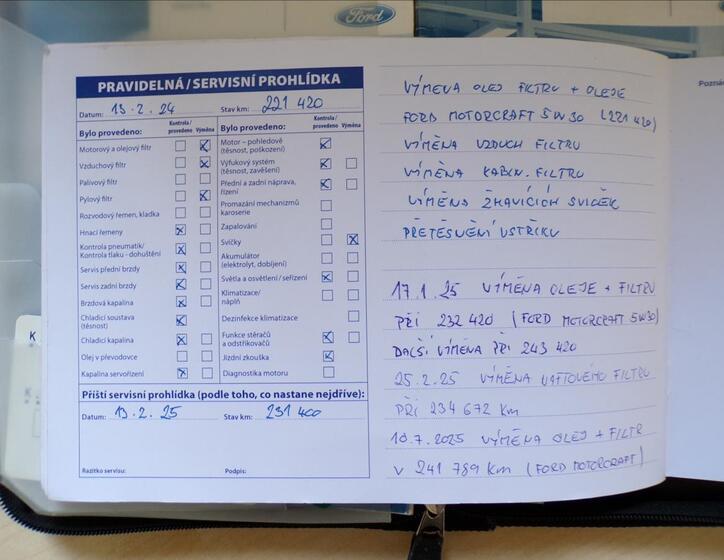 Ford
PRAVIDELNÁ / SERVISNÍ PROHLÍDKA
Datum: 13.2.24 Stav km: 221 420
Bylo provedeno: Kontrola / provedeno Výměna
Motorový a olejový filtr
Vzduchový filtr
Palivový filtr
Pylový filtr
Rozvodový řemen, kladka
Hnací řemeny
Kontrola pneumatik/
Kontrola tlaku - dohuštění
Servis přední brzdy
Servis zadní brzdy
Brzdová kapalina
Chladící soustava
(těsnost)
Chladící kapalina
Olej v převodovce
Kapalina servořízení
Bylo provedeno: Kontrola / provedeno Výměna
Motor – pohledově
(těsnost, poškození)
Výfukový systém
(těsnost, zavěšení)
Přední a zadní náprava,
řízení
Promazání mechanizmů
karoserie
Zapalování
Svíčky
Akumulátor
(elektrolyt, dobíjení)
Světla a osvětlení / seřízení
Klimatizace/
náplň
Dezinfekce klimatizace
Funkce stěračů
a odstřikovačů
Jízdní zkouška
Diagnostika motoru
Příští servisní prohlídka (podle toho, co nastane nejdříve):
Datum: 13.2.25 Stav km: 231 400
Razítko servisu: Podpis:
VÝMĚNA OLEJ FILTRU + OLEJE
FORD MOTORCRAFT 5W30 (221 420)
VÝMĚNA VZDUCH FILTRU
VÝMĚNA KABIN. FILTRU
VÝMĚNA ŽHAVÍCÍCH SVIČEK
PŘETĚSNĚNÍ VSTŘIKU
17.1.25 VÝMĚNA OLEJE + FILTRU
PŘI 232 420 (FORD MOTORCRAFT 5W30)
DALŠÍ VÝMĚNA PŘI 243 420
25.2.25 VÝMĚNA NAFTOVÉHO FILTRU
PŘI 234 672 Km
10.7.2025 VÝMĚNA OLEJ + FILTR
V 241 789 Km (FORD MOTORCRAFT)
K